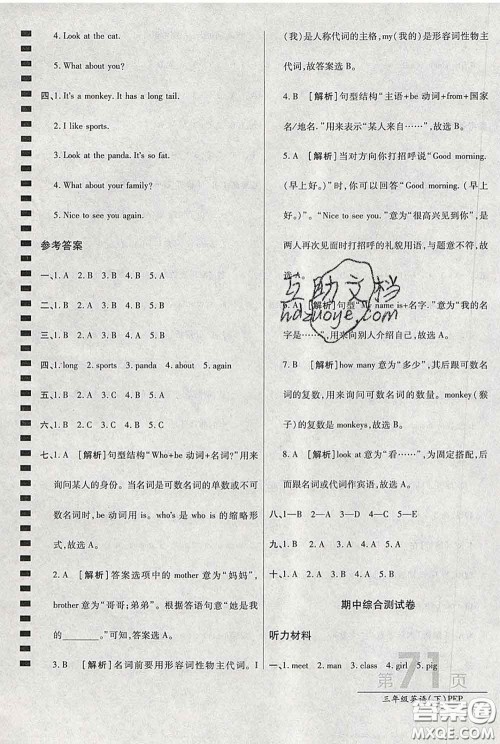 4. Look at the cat.
5. What about you?
四、1. It's a monkey. It has a long tail.
2. I like sports.
3. Look at the panda. It's so fat.
4. What about your family?
5. Nice to see you again.
参考答案
一、1. A 2. B 3. B 4. B 5. A
二、1. A 2. B 3. A 4. B 5. A
三、1. B 2. A 3. B 4. B 5. A
四、1. long 2. sports 3. panda 4. about 5. again
五、1. B 2. A 3. B 4. A 5. B
六、1. B 2. A 3. B 4. A 5. B
七、1. A [解析]句型结构“Who+be 动词+名词?”用来
询问某人的身份。当名词是可数名词的单数或不
可数名词时,be 动词用 is。who's 是 who is 的缩略形
式,故选 A。
2. A [解析]答案选项中的 mother 意为“妈妈”,
brother 意为“哥哥;弟弟”。根据答语意为“她是我
的______。”可知,答案选 A。
3. B [解析]名词前要用形容词性物主代词。I
(我)是人称代词的主格,my(我的)是形容词性物主
代词,故答案选 B。
4. B [解析]句型结构“主语+be 动词+from+国家
名/地名.”用来表示“某人来自……”,故选 B。
5. A [解析]当对方向你打招呼说“Good morning.
(早上好。)”时,你可以回答“Good morning. (早上
好。)”。“Nice to see you.”意为“很高兴见到你”,是
两人再次见面时打招呼的礼貌用语,与题意不符。故
选 A。
6. A [解析]句型“My name is+名字.”意为“我的名
字是……”,用来向别人介绍自己,故选 A。
7. B [解析]how many 意为“多少”,其后跟可数名
词的复数,用来询问可数名词的数量。monkey(猴
子)的复数是 monkeys,故选 B。
8. A [解析]look at 意为“看……”,为固定搭配,后
面跟名词或代词作宾语,故选 A。
八、1. D 2. A 3. B 4. C 5. E
九、1. B 2. A 3. B 4. A 5. B
十、1. A 2. B 3. A 4. B 5. B
期中综合测试卷
听力材料
一、1. meet 2. man 3. class 4. girl 5. pig
第71页
三年级英语(下)PEP
互助文档
hdzuoye.com
作业帮
MXQE.COM